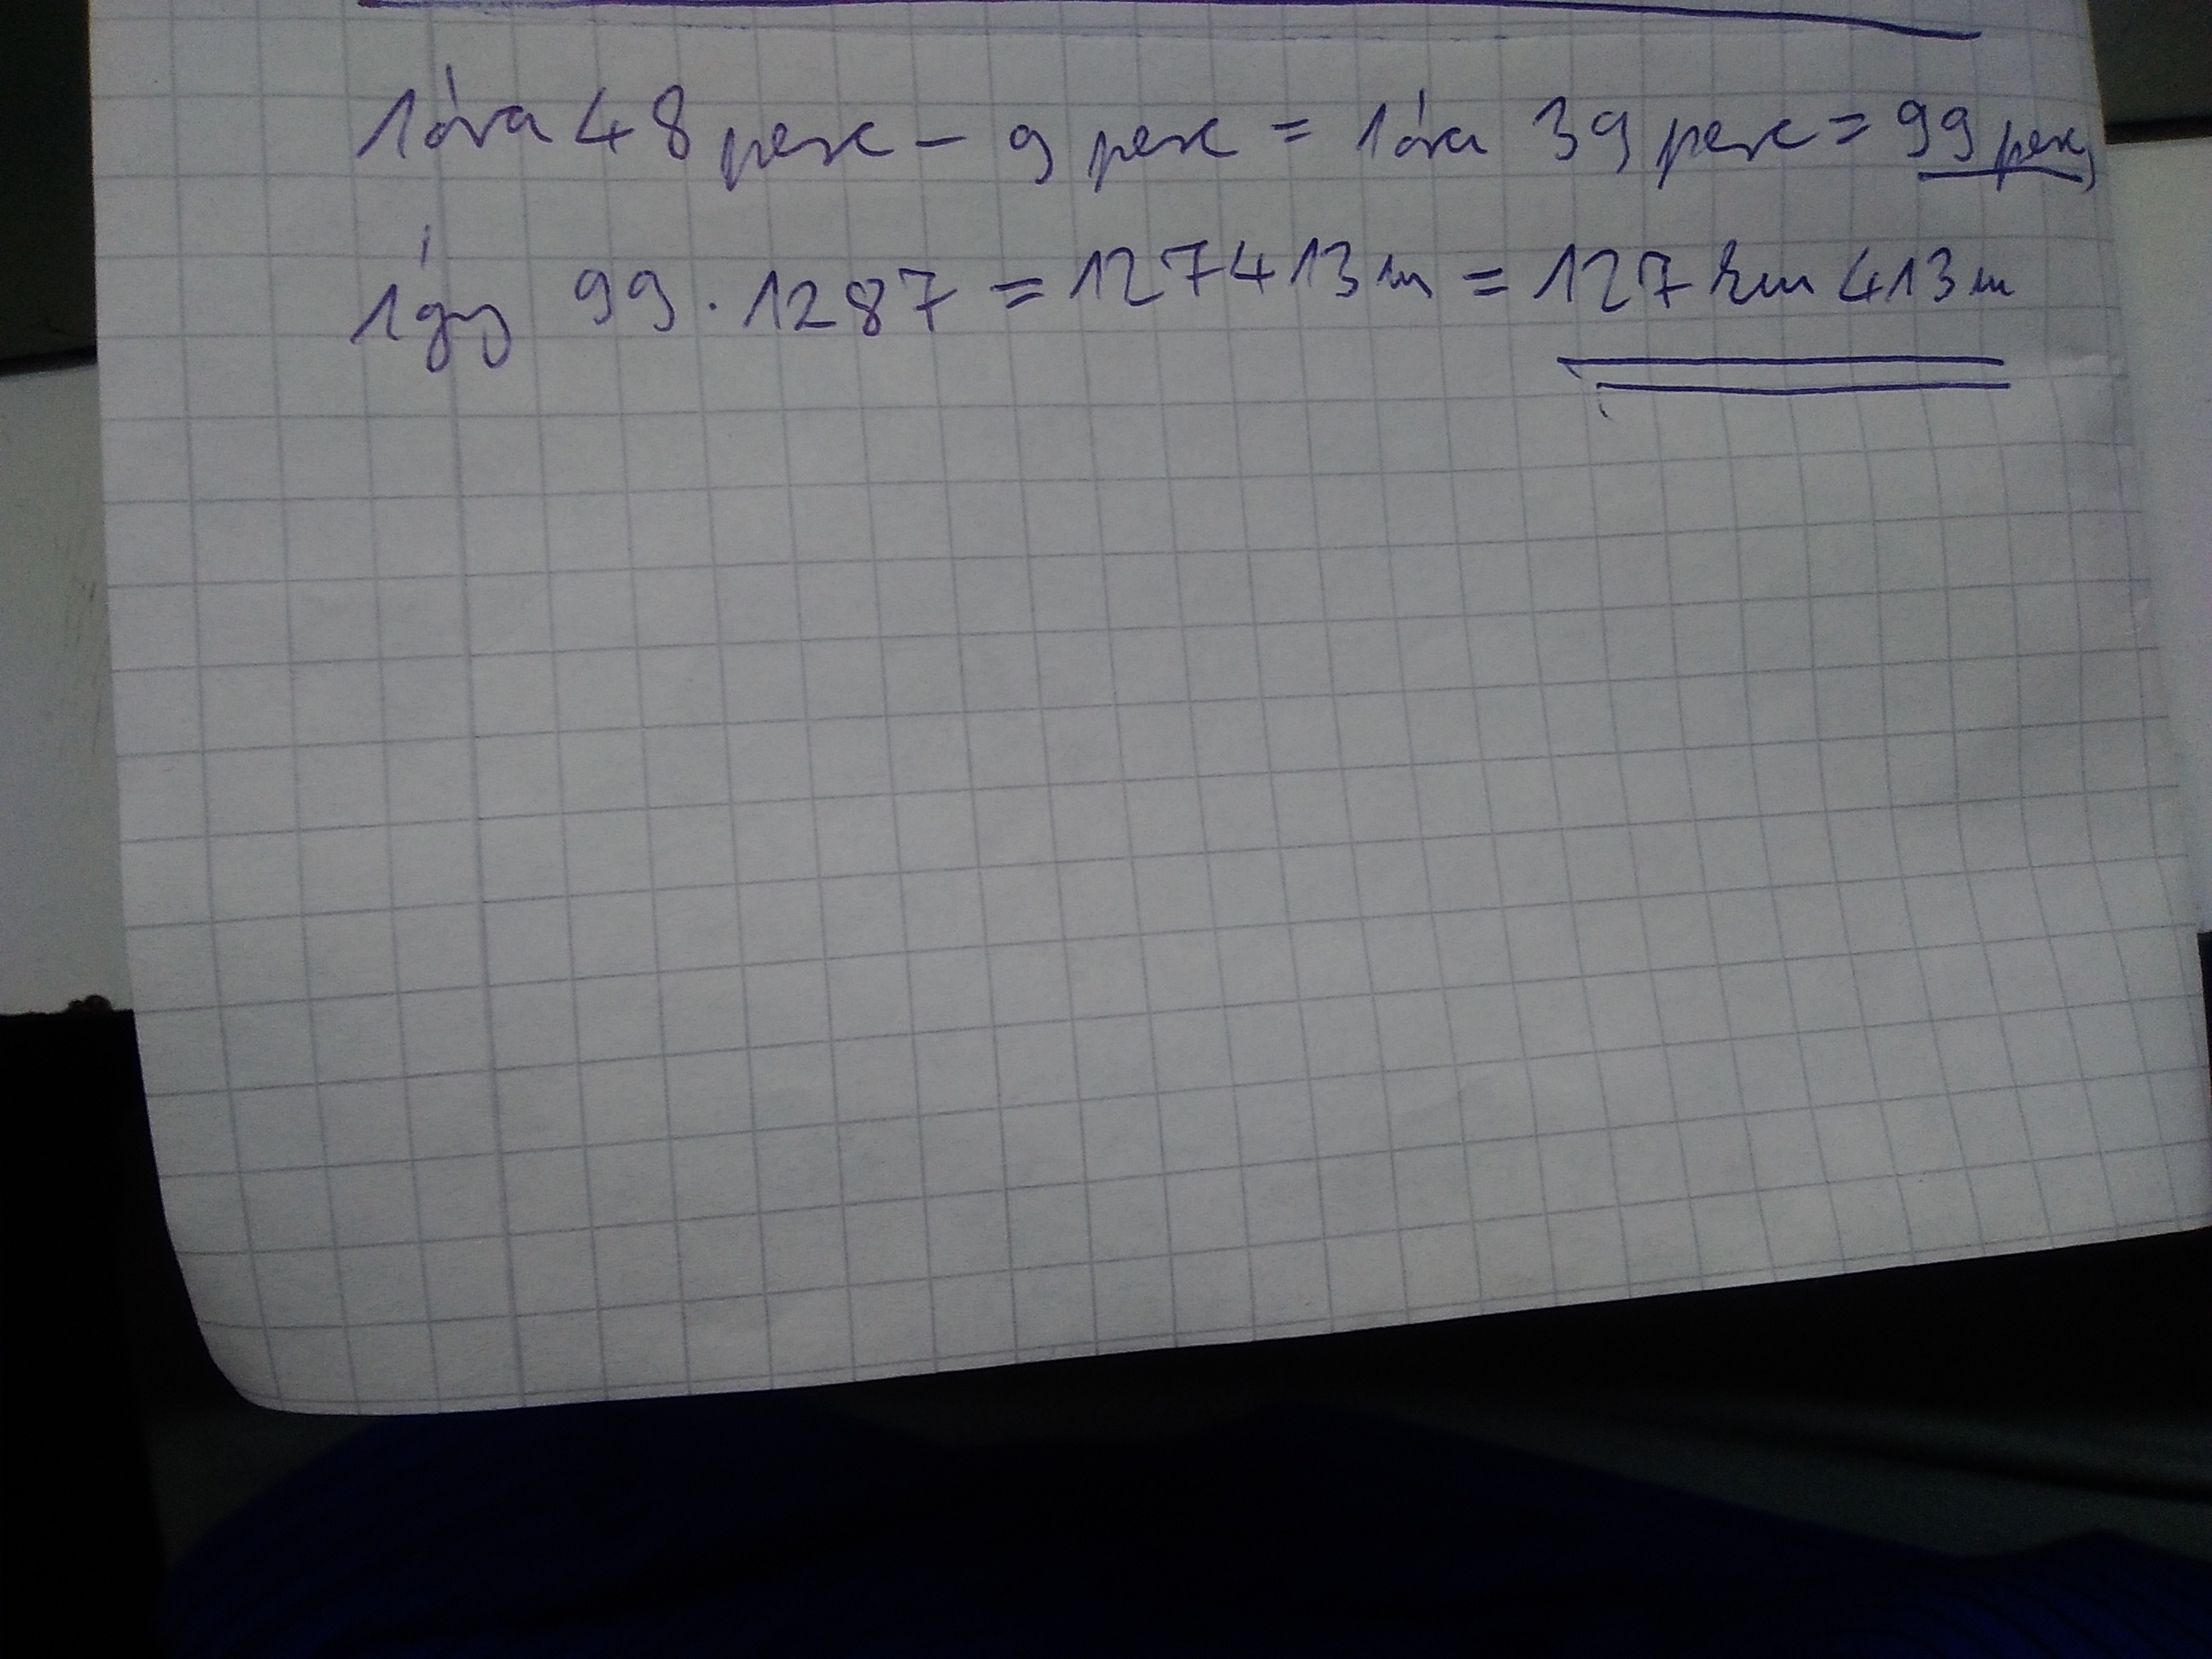 1 óra 48 perc - 9 perc = 1 óra 39 perc = 99 perc,
Így 99 · 1287 = 127413 m = 127 km 413 m